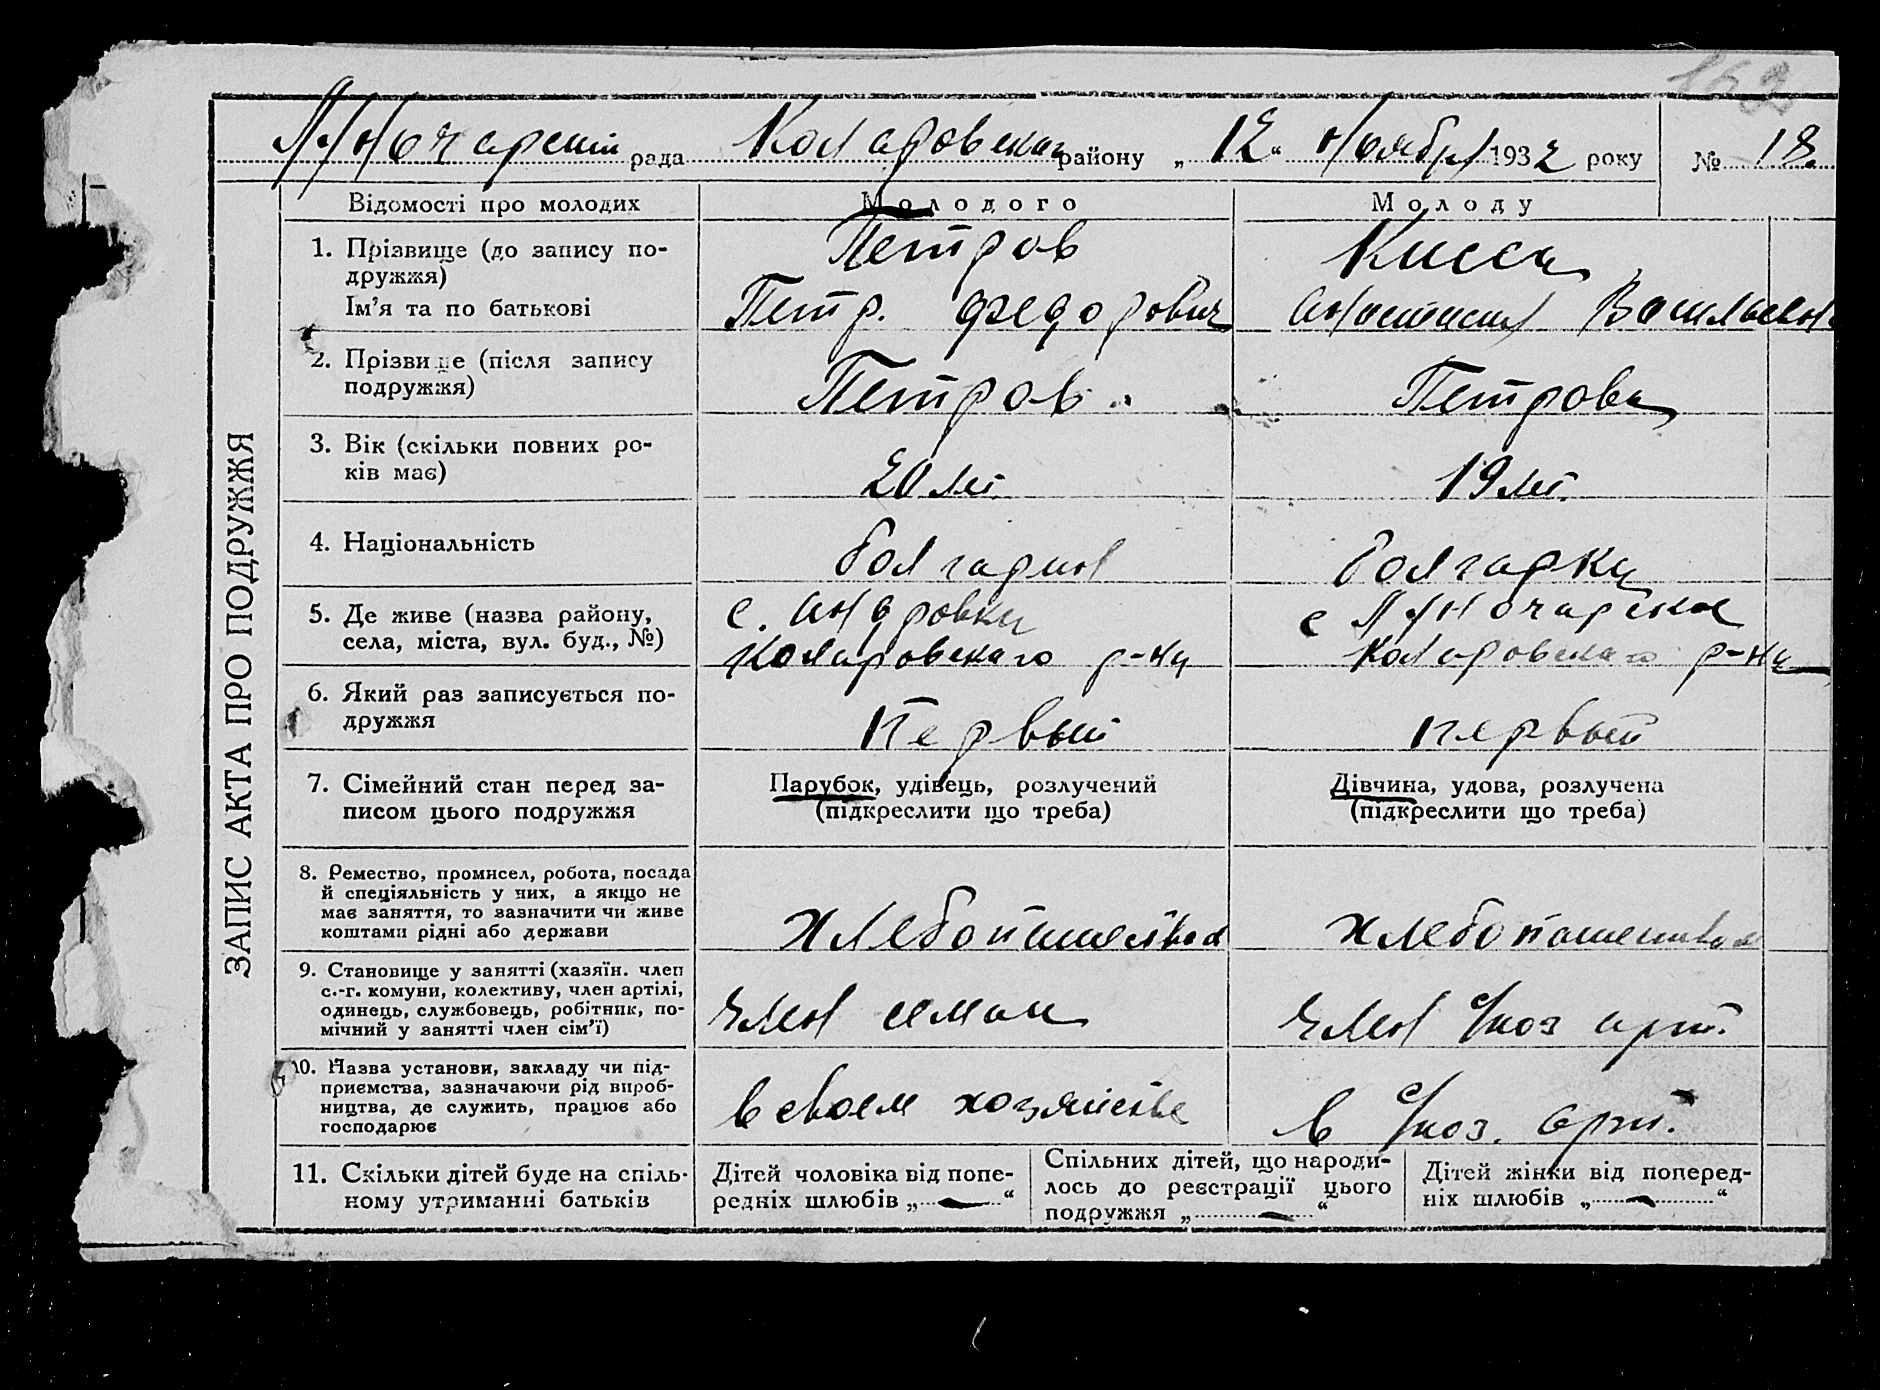 162
Луначарский рада Коларовскаго району „ 12 “ ноября 1932 року № 18.
ЗАПИС АКТА ПРО ПОДРУЖЖЯ
Відомості про молодих
Молодого
Молоду
1. Прізвище (до запису по-
дружжя)
Ім’я та по батькові
Петров
Петр. Федорович
Кисса
Анастасия Васильевна
2. Прізвище (після запису
подружжя)
Петров
Петрова
3. Вік (скільки повних ро-
ків має)
20 лет
19 лет.
4. Національність
болгарин
болгарка
5. Де живе (назва району,
села, міста, вул. буд., №)
с. Андровка
Коларовскаго р-на
с Луначарское
Коларовскаго р-на
6. Який раз записується по-
дружжя
Первый
первый
7. Сімейний стан перед за-
писом цього подружжя
Парубок, удівець, розлучений
(підкреслити що треба)
Дівчина, удова, розлучена
(підкреслити що треба)
8. Ремество, промисел, робота, посада
й спеціяльність у них, а якщо не
має заняття, то зазначити чи живе
коштами рідні або держави
хлебопашество
хлебопашество
9. Становище у занятті (хазяїн. член
с.-г. комуни, колективу, член артілі,
одинець, службовець, робітник, по-
мічний у занятті член сім’ї)
член семьи
член с/хоз арт.
10. Назва установи, закладу чи під-
приємства, зазначаючи рід вироб-
ництва, де служить, працює або
господарює
в своем хозяйстве
в с/хоз. арт.
11. Скільки дітей буде на спіль-
ному утриманні батьків
Дітей чоловіка від попе-
редніх шлюбів „ — “
Спільних дітей, що народи-
лось до реєстрації цього
подружжя „ — “
Дітей жінки від поперед-
ніх шлюбів „ — “